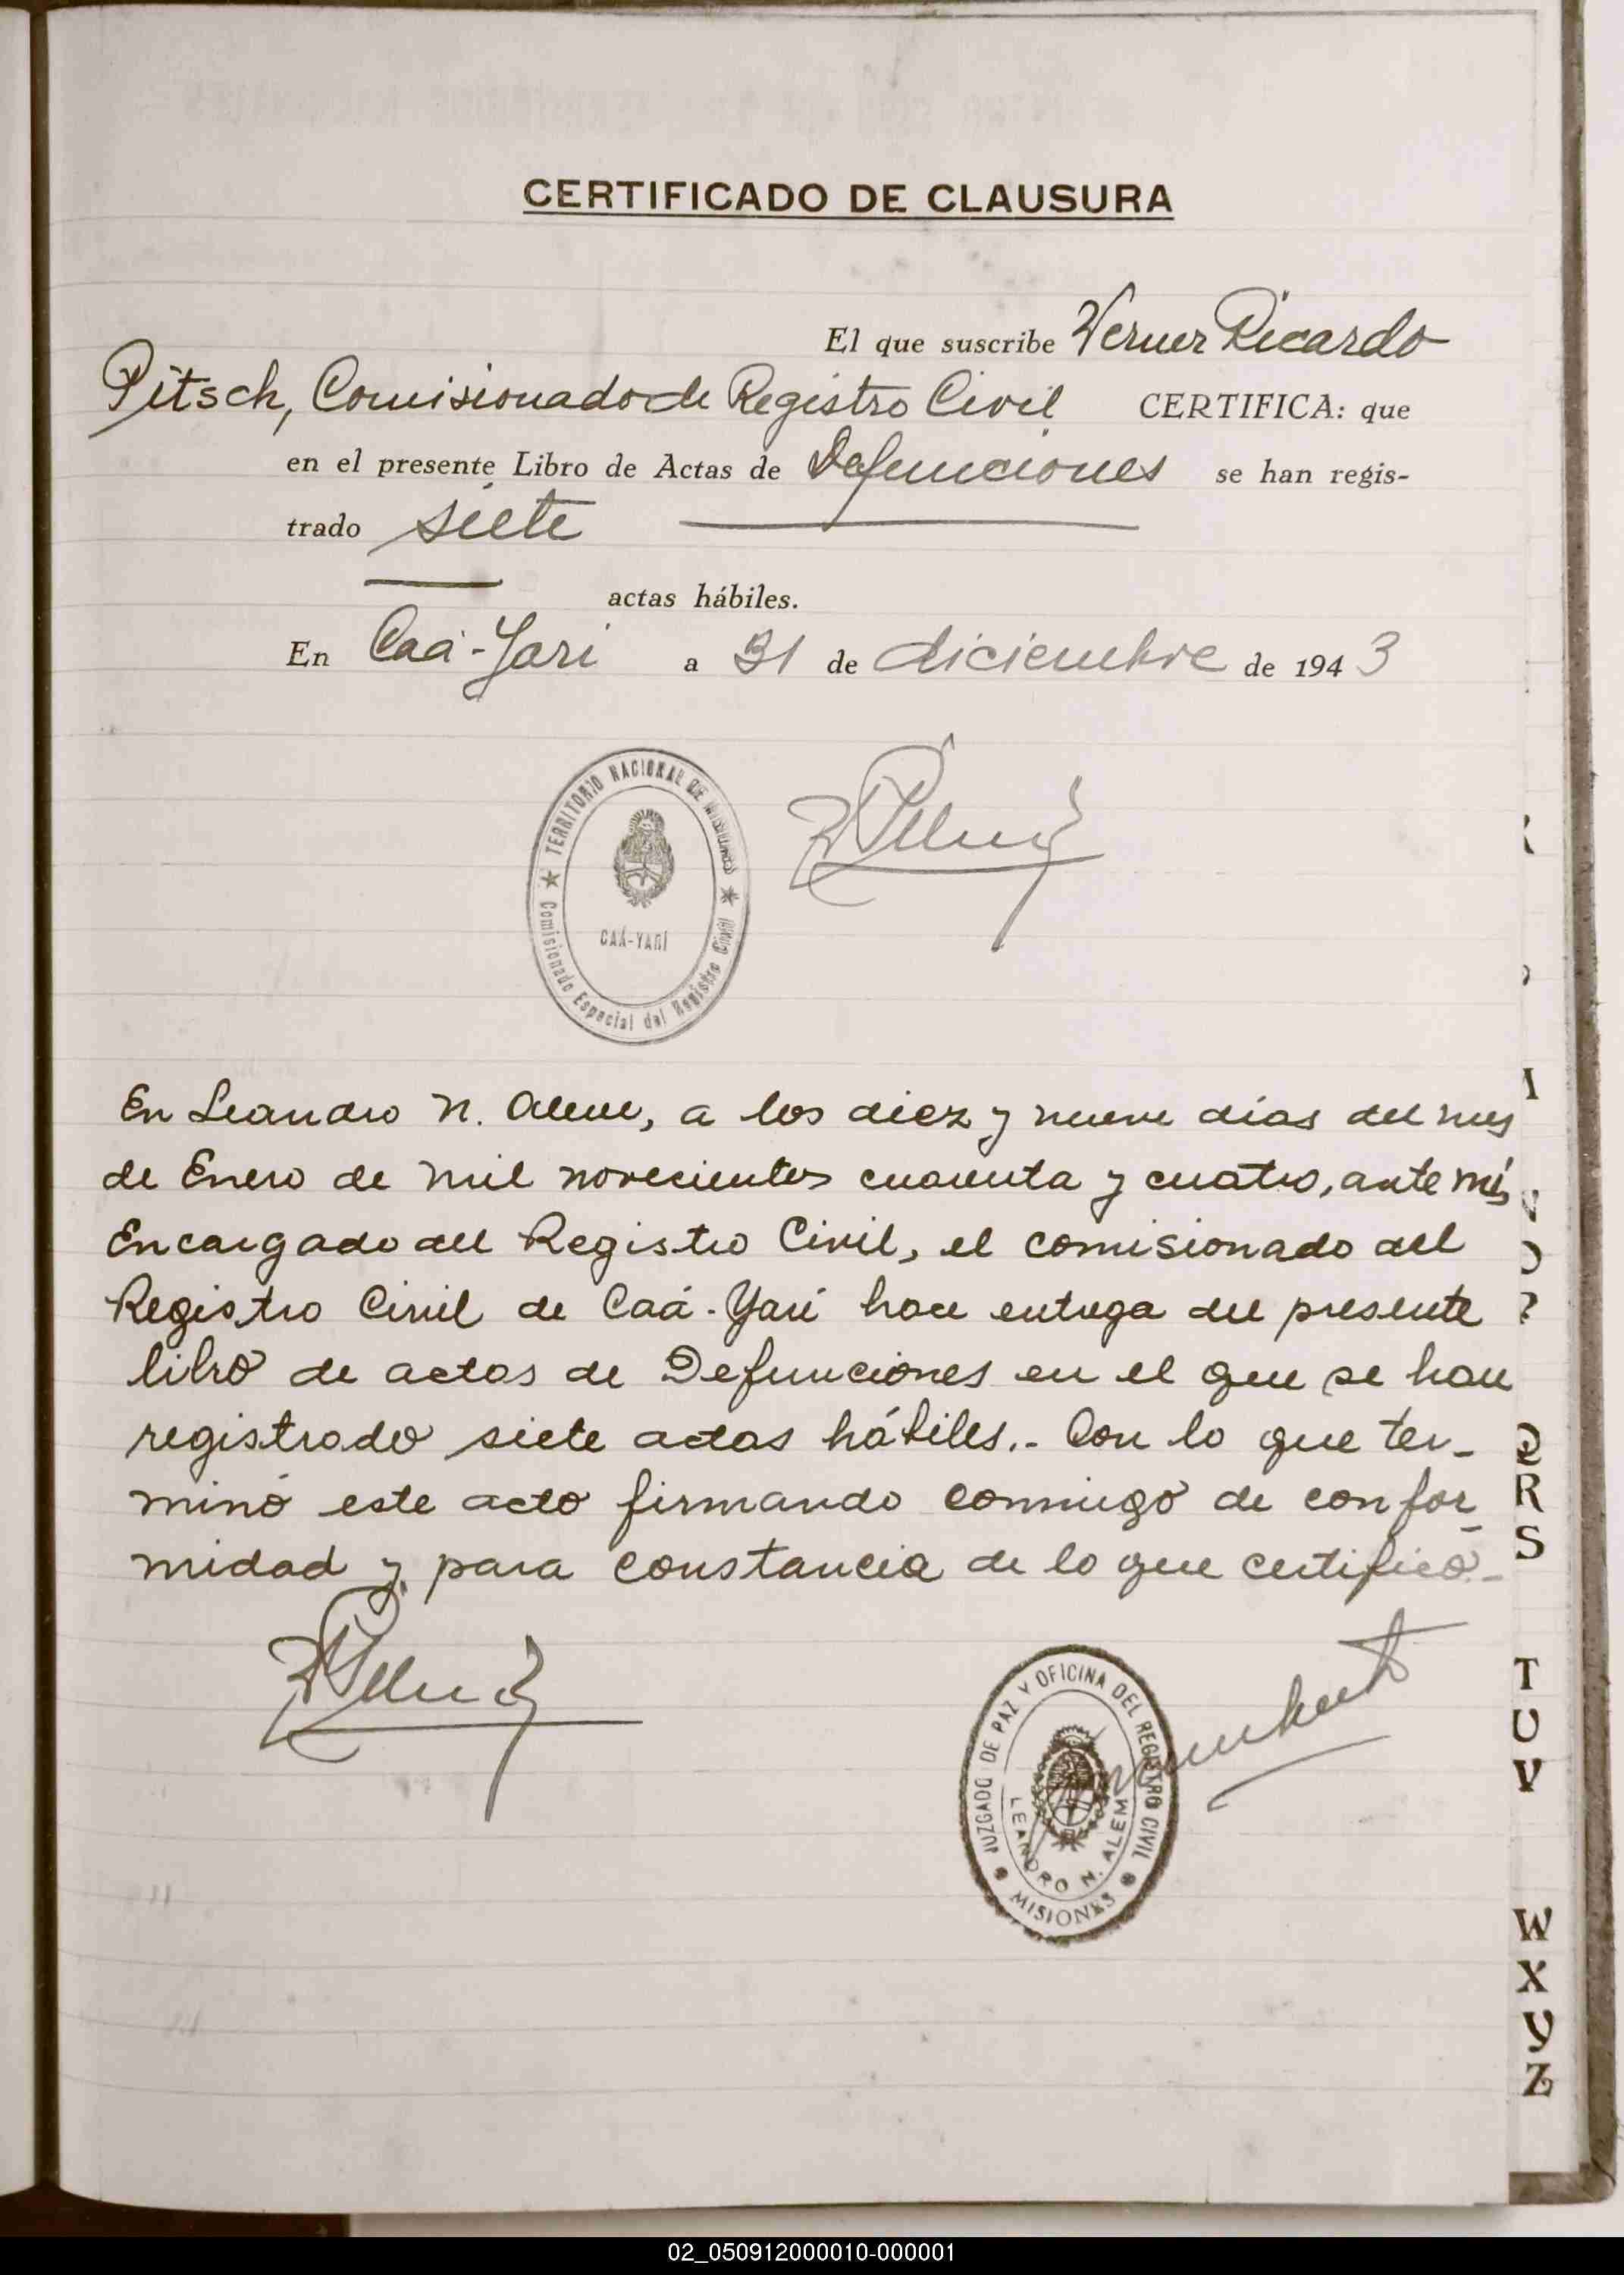 CERTIFICADO DE CLAUSURA
El que suscribe Werner Ricardo
Pitsch, Comisionado de Registro Civil CERTIFICA: que
en el presente Libro de Actas de Defunciones se han regis-
trado siete
actas hábiles.
En Caá-Yari a 31 de diciembre de 1943
TERRITORIO NACIONAL DE MISIONES
CAÁ-YARÍ
Comisionado Especial del Registro Civil
En Leandro N. Alem, a los diez y nueve días del mes
de Enero de mil novecientos cuarenta y cuatro, ante mí,
Encargado del Registro Civil, el comisionado del
Registro Civil de Caá-Yarí hace entrega del presente
libro de actas de Defunciones en el que se han
registrado siete actas hábiles.- Con lo que ter-
minó este acto firmando conmigo de confor-
midad y para constancia de lo que certifico.-
JUZGADO DE PAZ Y OFICINA DEL REGISTRO CIVIL
LEANDRO N. ALEM
MISIONES
Q
R
S
T
U
V
W
X
Y
Z
02_050912000010-000001